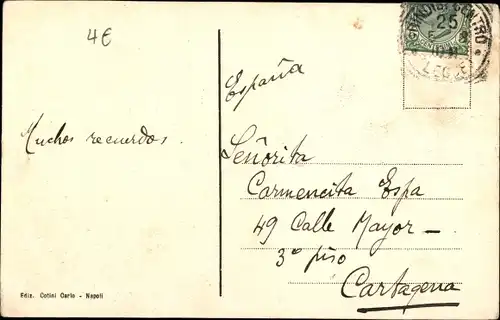 4€
BRINDISI CENTRO
25
España
Muchos recuerdos.
Señorita
Carmencita Espa
49 Calle Mayor —
3º piso
Cartagena
Ediz. Cotini Carlo - Napoli